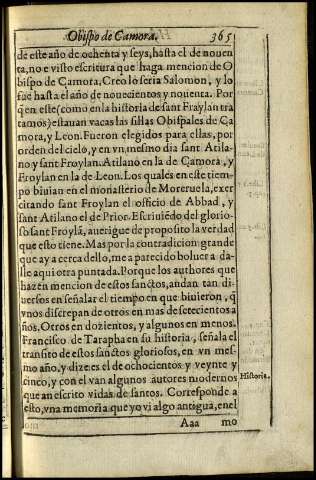 Obispo de Çamora. 365
de este año de ochenta y seys, hasta el de nouen
ta, no e visto escritura que haga mencion de O
bispo de Çamora, Creo lo seria Salomon, y lo
fue hasta el año de nouecientos y nouenta. Por
q̃ en este (como en la historia de sant Fraylan tra
tamos) estauan vacas las sillas Obispales de Ça
mora, y Leon. Fueron elegidos para ellas, por
orden del cielo, y en vn, mesmo dia sant Atila-
no y sant Froylan. Atilano en la de Çamora, y
Froylan en la de Leon. Los quales en este tiem-
po biuian en el monasterio de Moreruela, exer
citando sant Froylan el officio de Abbad, y
sant Atilano el de Prior. Escriuiẽdo del glorio-
so sant Froylã, auerigue de proposito la verdad
que esto tiene. Mas por la contradicion grande
que ay acerca dello, me a parecido boluer a da-
lle aqui otra puntada. Porque los authores que
hazen mencion de estos sanctos, andan tan di
uersos en señalar el tiempo en que biuieron, q̃
vnos discrepan de otros en mas de setecientos a
ños. Otros en dozientos, y algunos en menos.
Francisco de Tarapha en su historia, señala el
transito de estos sanctos gloriosos, en vn mes-
mo año, y dize es el de ochocientos y veynte y
cinco, y con el van algunos autores modernos
Historia.
que an escrito vidas de santos. Corresponde a
esto, vna memoria que yo vi algo antigua, en el
Aaa mo